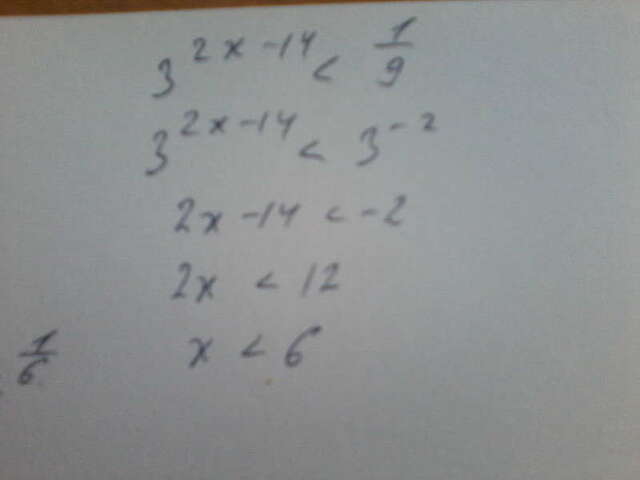 3^{2x-14} < \frac{1}{9}
3^{2x-14} < 3^{-2}
2x - 14 < -2
2x < 12
x < 6
\frac{1}{6}